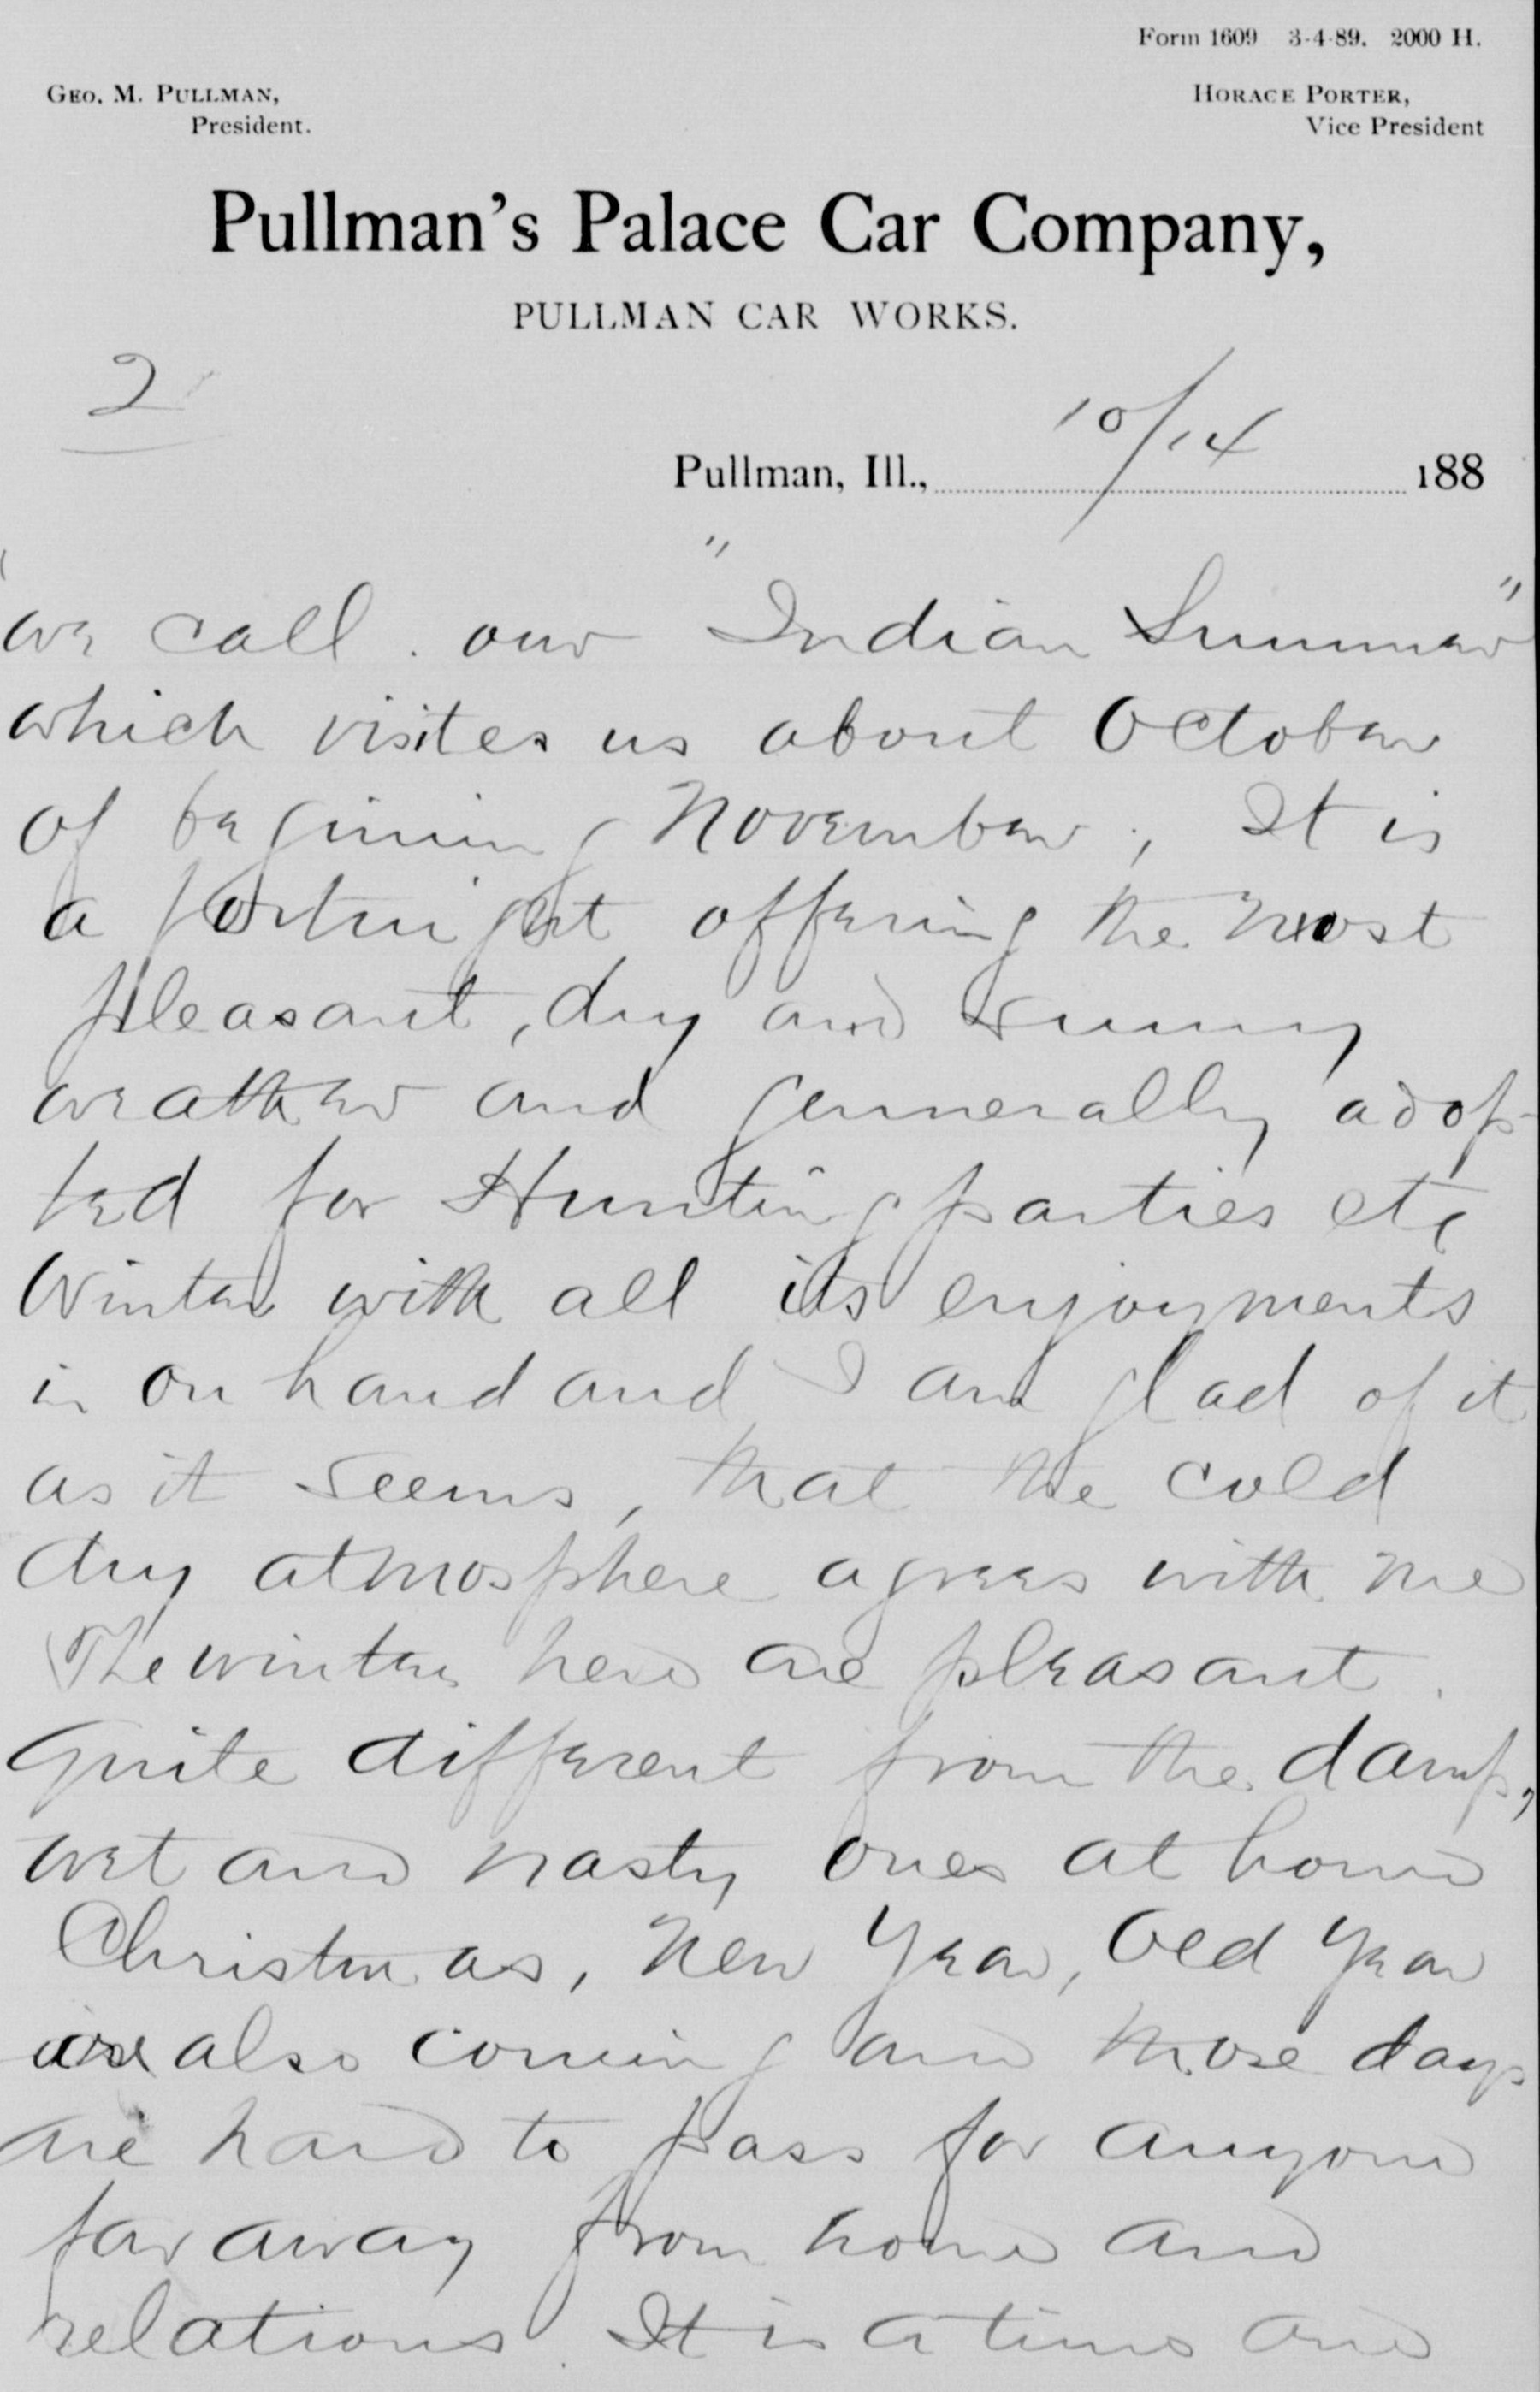 Form 1609 3-4-89. 2000 H.
GEO. M. PULLMAN,
President.
HORACE PORTER,
Vice President
Pullman's Palace Car Company,
PULLMAN CAR WORKS.
2
Pullman, Ill., 10/14 188
we call our "Indian Summer"
which visites us about October
of begining November; It is
a fortnight offering the most
pleasant, dry and sunny
weather and gennerally adop-
ted for Hunting parties etc
Winter with all its enjoyments
is on hand and I am glad of it
as it seems, that the cold
dry atmosphere agrees with me
The winters here are pleasant.
Quite different from the damp,
wet and nasty ones at home
Christmas, New Year, Old Year
are also coming and those days
are hard to pass for anyone
far away from home and
relations. It is a time and